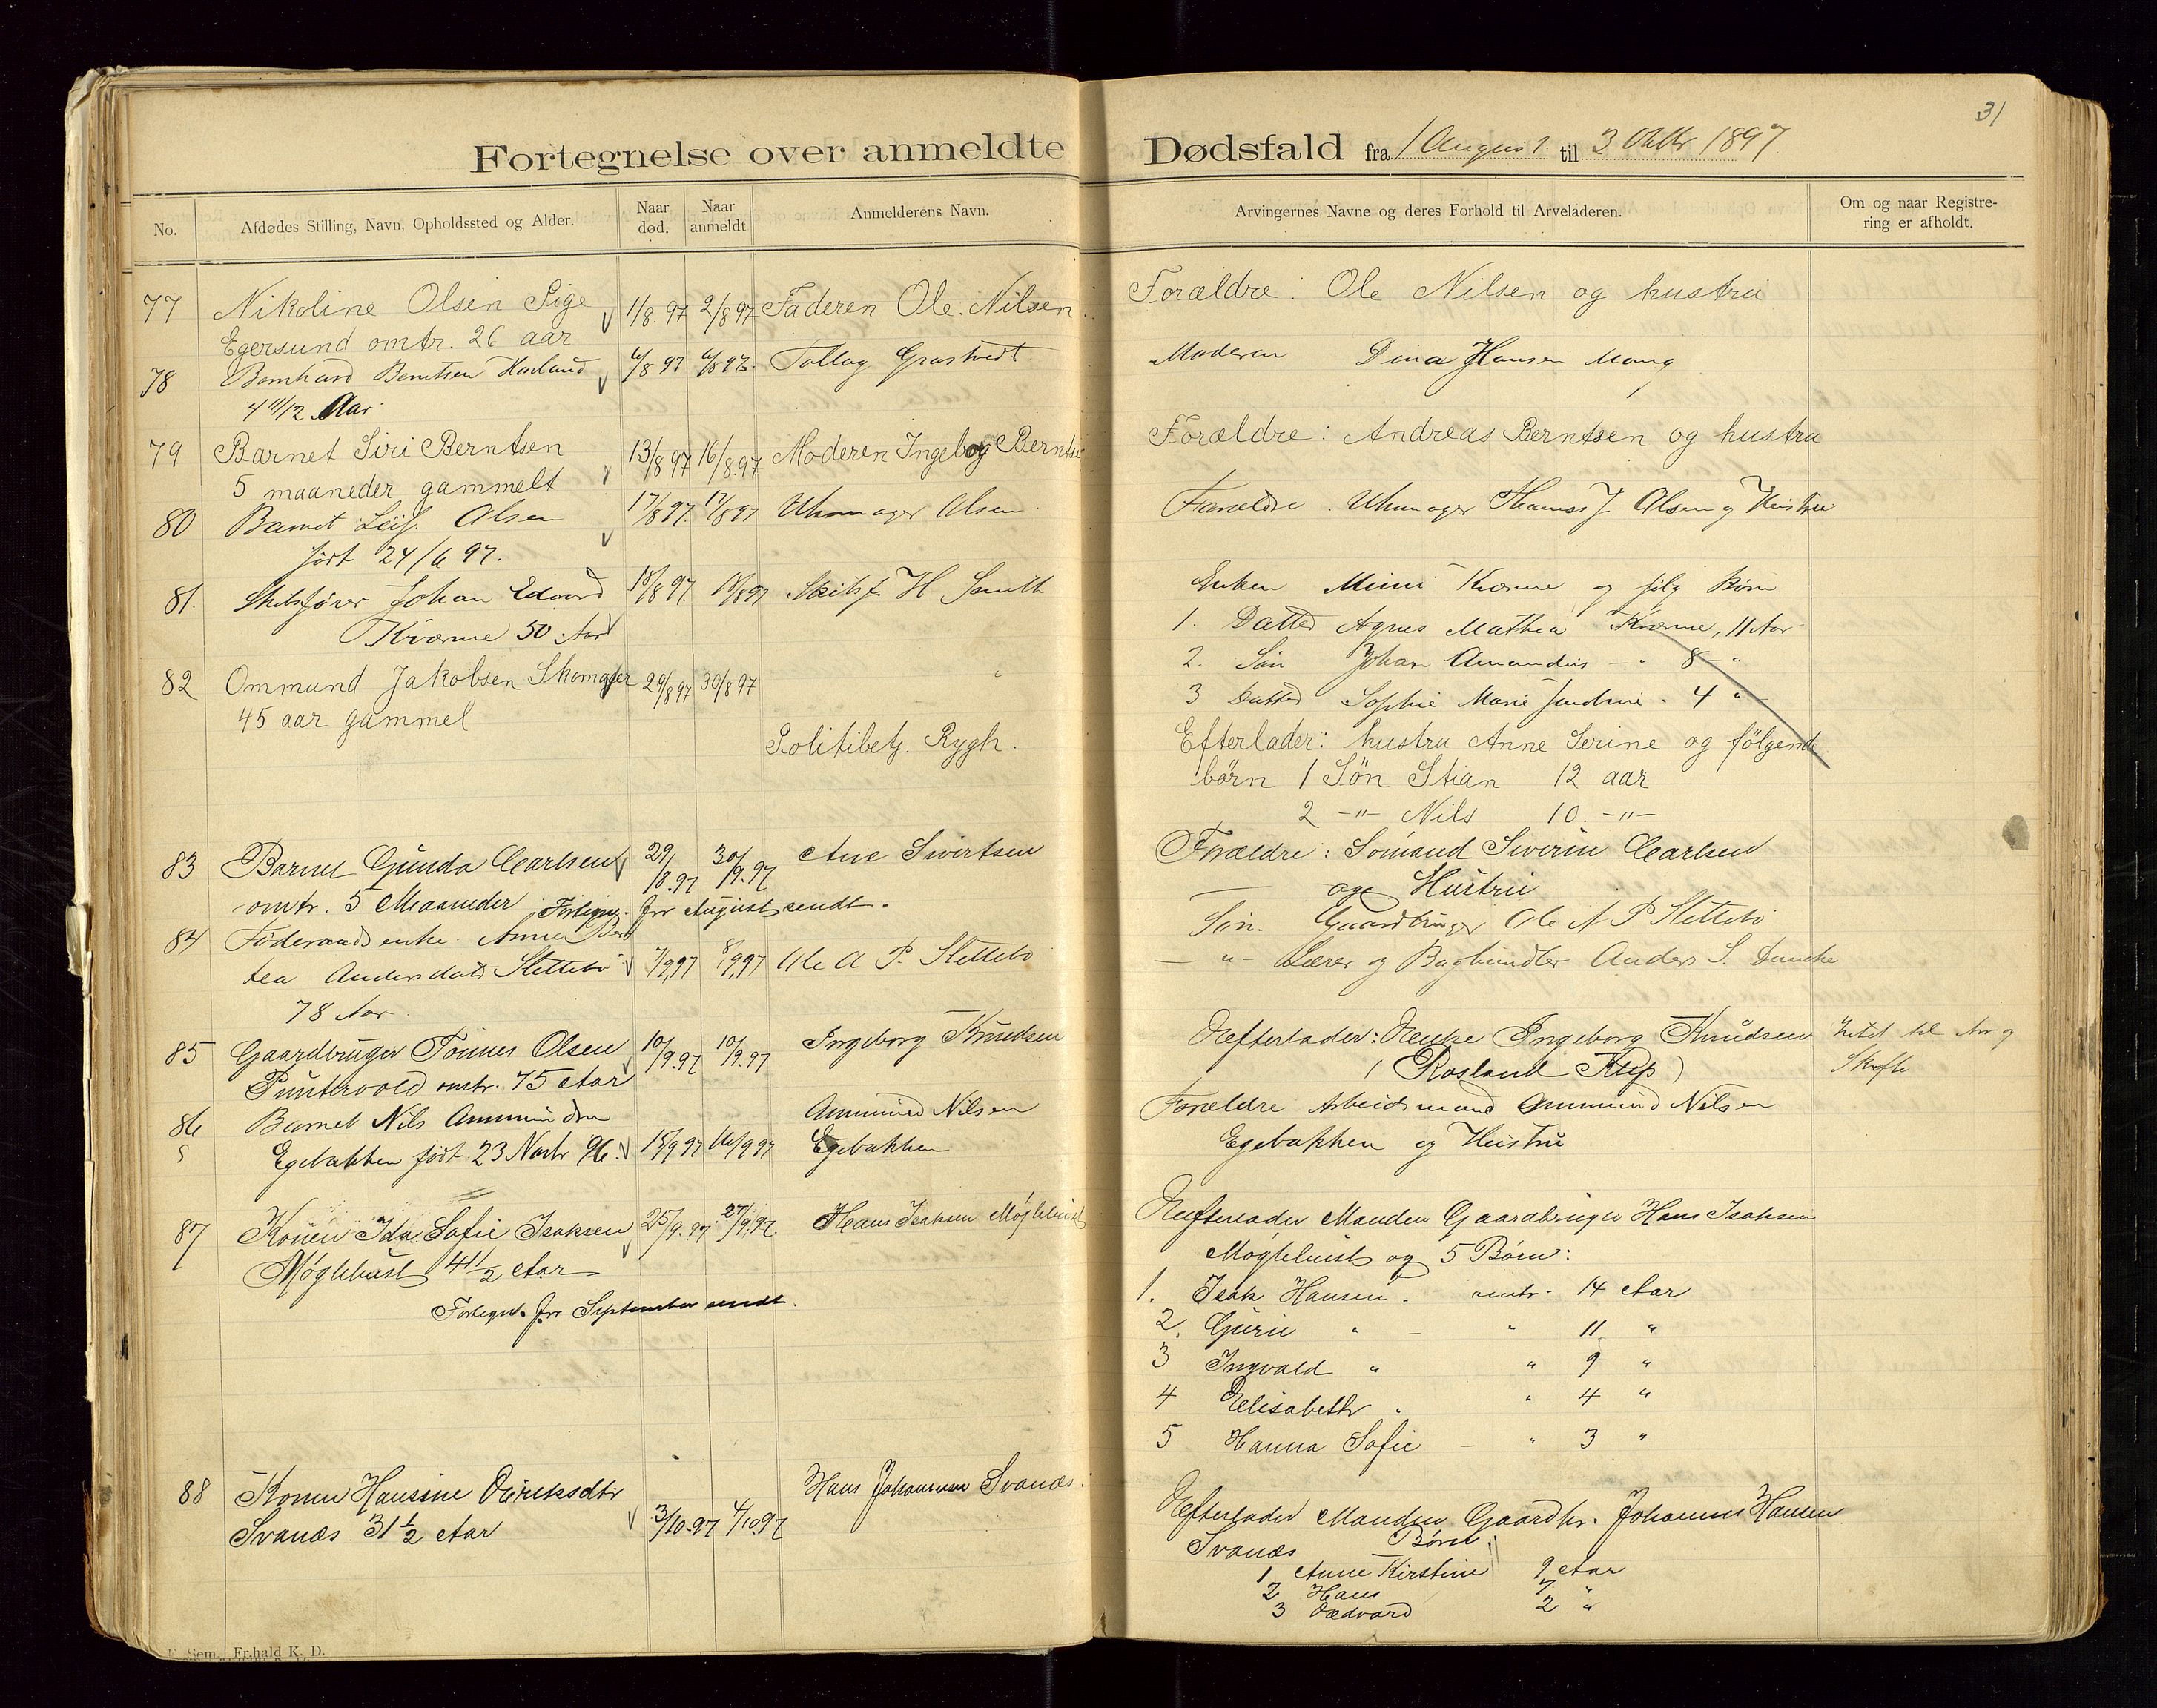 31
Fortegnelse over anmeldte Dødsfald fra 1 August til 3 Oktbr 1897
No.
Afdødes Stilling, Navn, Opholdssted og Alder.
Naar død.
Naar anmeldt
Anmelderens Navn.
Arvingernes Navne og deres Forhold til Arveladeren.
Om og naar Registrering er afholdt.
77 Nikoline Olsen Pige 1/8.97 2/8 97 Faderen Ole. Nilsen Forældre: Ole Nilsen og hustru
Egersund omtr. 26 aar
78 Bernhard Berntsen Havland 6/8 97 6/8 97. Tollag Grastvedt Moderen Dina Hansen Mong
4 11/12 Aar
79 Barnet Siri Berntsen 13/8 97 16/8.97 Moderen Ingebog Berntse Forældre: Andreas Berntsen og hustru
5 maaneder gammelt
80 Barnet Leif. Olsen 17/8 97. 17/8 97 Uhrmager Olsen Forældre. Uhrmager Thomas J. Olsen og Hustru
født 24/6 97.
81. Skibsfører Johan Edvard 18/8 97. 18/8 97 Skibsf. H Enken Mimi Kværne og følg Børn
Kværne 50 Aar
1. Datter Agnes Mathea Kværne, 11 Aar
2. Søn Johan Amandus - " 8 "
3 Datter Sophie Marie . 4 "
82 Ommund Jakobsen Skomager 29/8 97 30/8 97
45 aar gammel
Politibetj. Rygh.
Efterlader: hustru Anne Serine og følgende
børn 1 Søn Stian 12 aar
2 -"- Nils 10. -"-
83 Barnet Gunda Carlsen 29/8.97 30/9.97 Ane Sivertsen Forældre: Sømand Siverin Carlsen
og Hustru
omtr. 5 Maaneder Fortegn. for August sendt.
84 Føderaadsenke. Anne Ber
tea Andersdatr Slettebø 7/9.97 8/9.97 Ole A P. Slettebø
78 Aar
Søn. Gaardbruger Ole A P Slettebø
- " - Lærer og Boghandler Anders S.
85 Gaardbruger Tönnes Olsen 10/9.97 10/9.97 Ingeborg Knudsen Efterlader: Enke Ingeborg Knudsen
Puntervold omtr. 75 Aar
(Rosland )
til Arv og
Skifte
86 Barnet Nils Ommundsen Ommund Nilsen Forældre Arbeidsmand Ommund Nilsen
Egebakken født 23 Novbr 96. 15/9 97 16/9 97 Egebakken Egebakken og Hustru
87 Konen Ida Sofie Isaksen 25/9.97 27/9.97. Hans Isaksen Møglebust Efterlader Manden Gaardbruger Hans Isaksen
Møglebust 41 1/2 Aar
Møglebust og 5 Børn:
Fortegn. for September sendt.
1. Isak Hansen. omtr. 14 Aar
2. Guri " - " 11 "
3 Ingvald " " 9 "
4 Elisabeth " " 4 "
5 Hanna Sofie - " 3 "
88 Konen Hansine Didriksdtr Hans Johannesen Svanæs.
Svanæs 31 1/2 Aar 3/10-97 4/10 97
Efterlader Manden Gaardbr. Johannes Hansen
Svanæs Børn:
1 Anne Kirstine 9 Aar
2 Hans 7 "
3 Edvard 2 "
Fr.hald K. D.